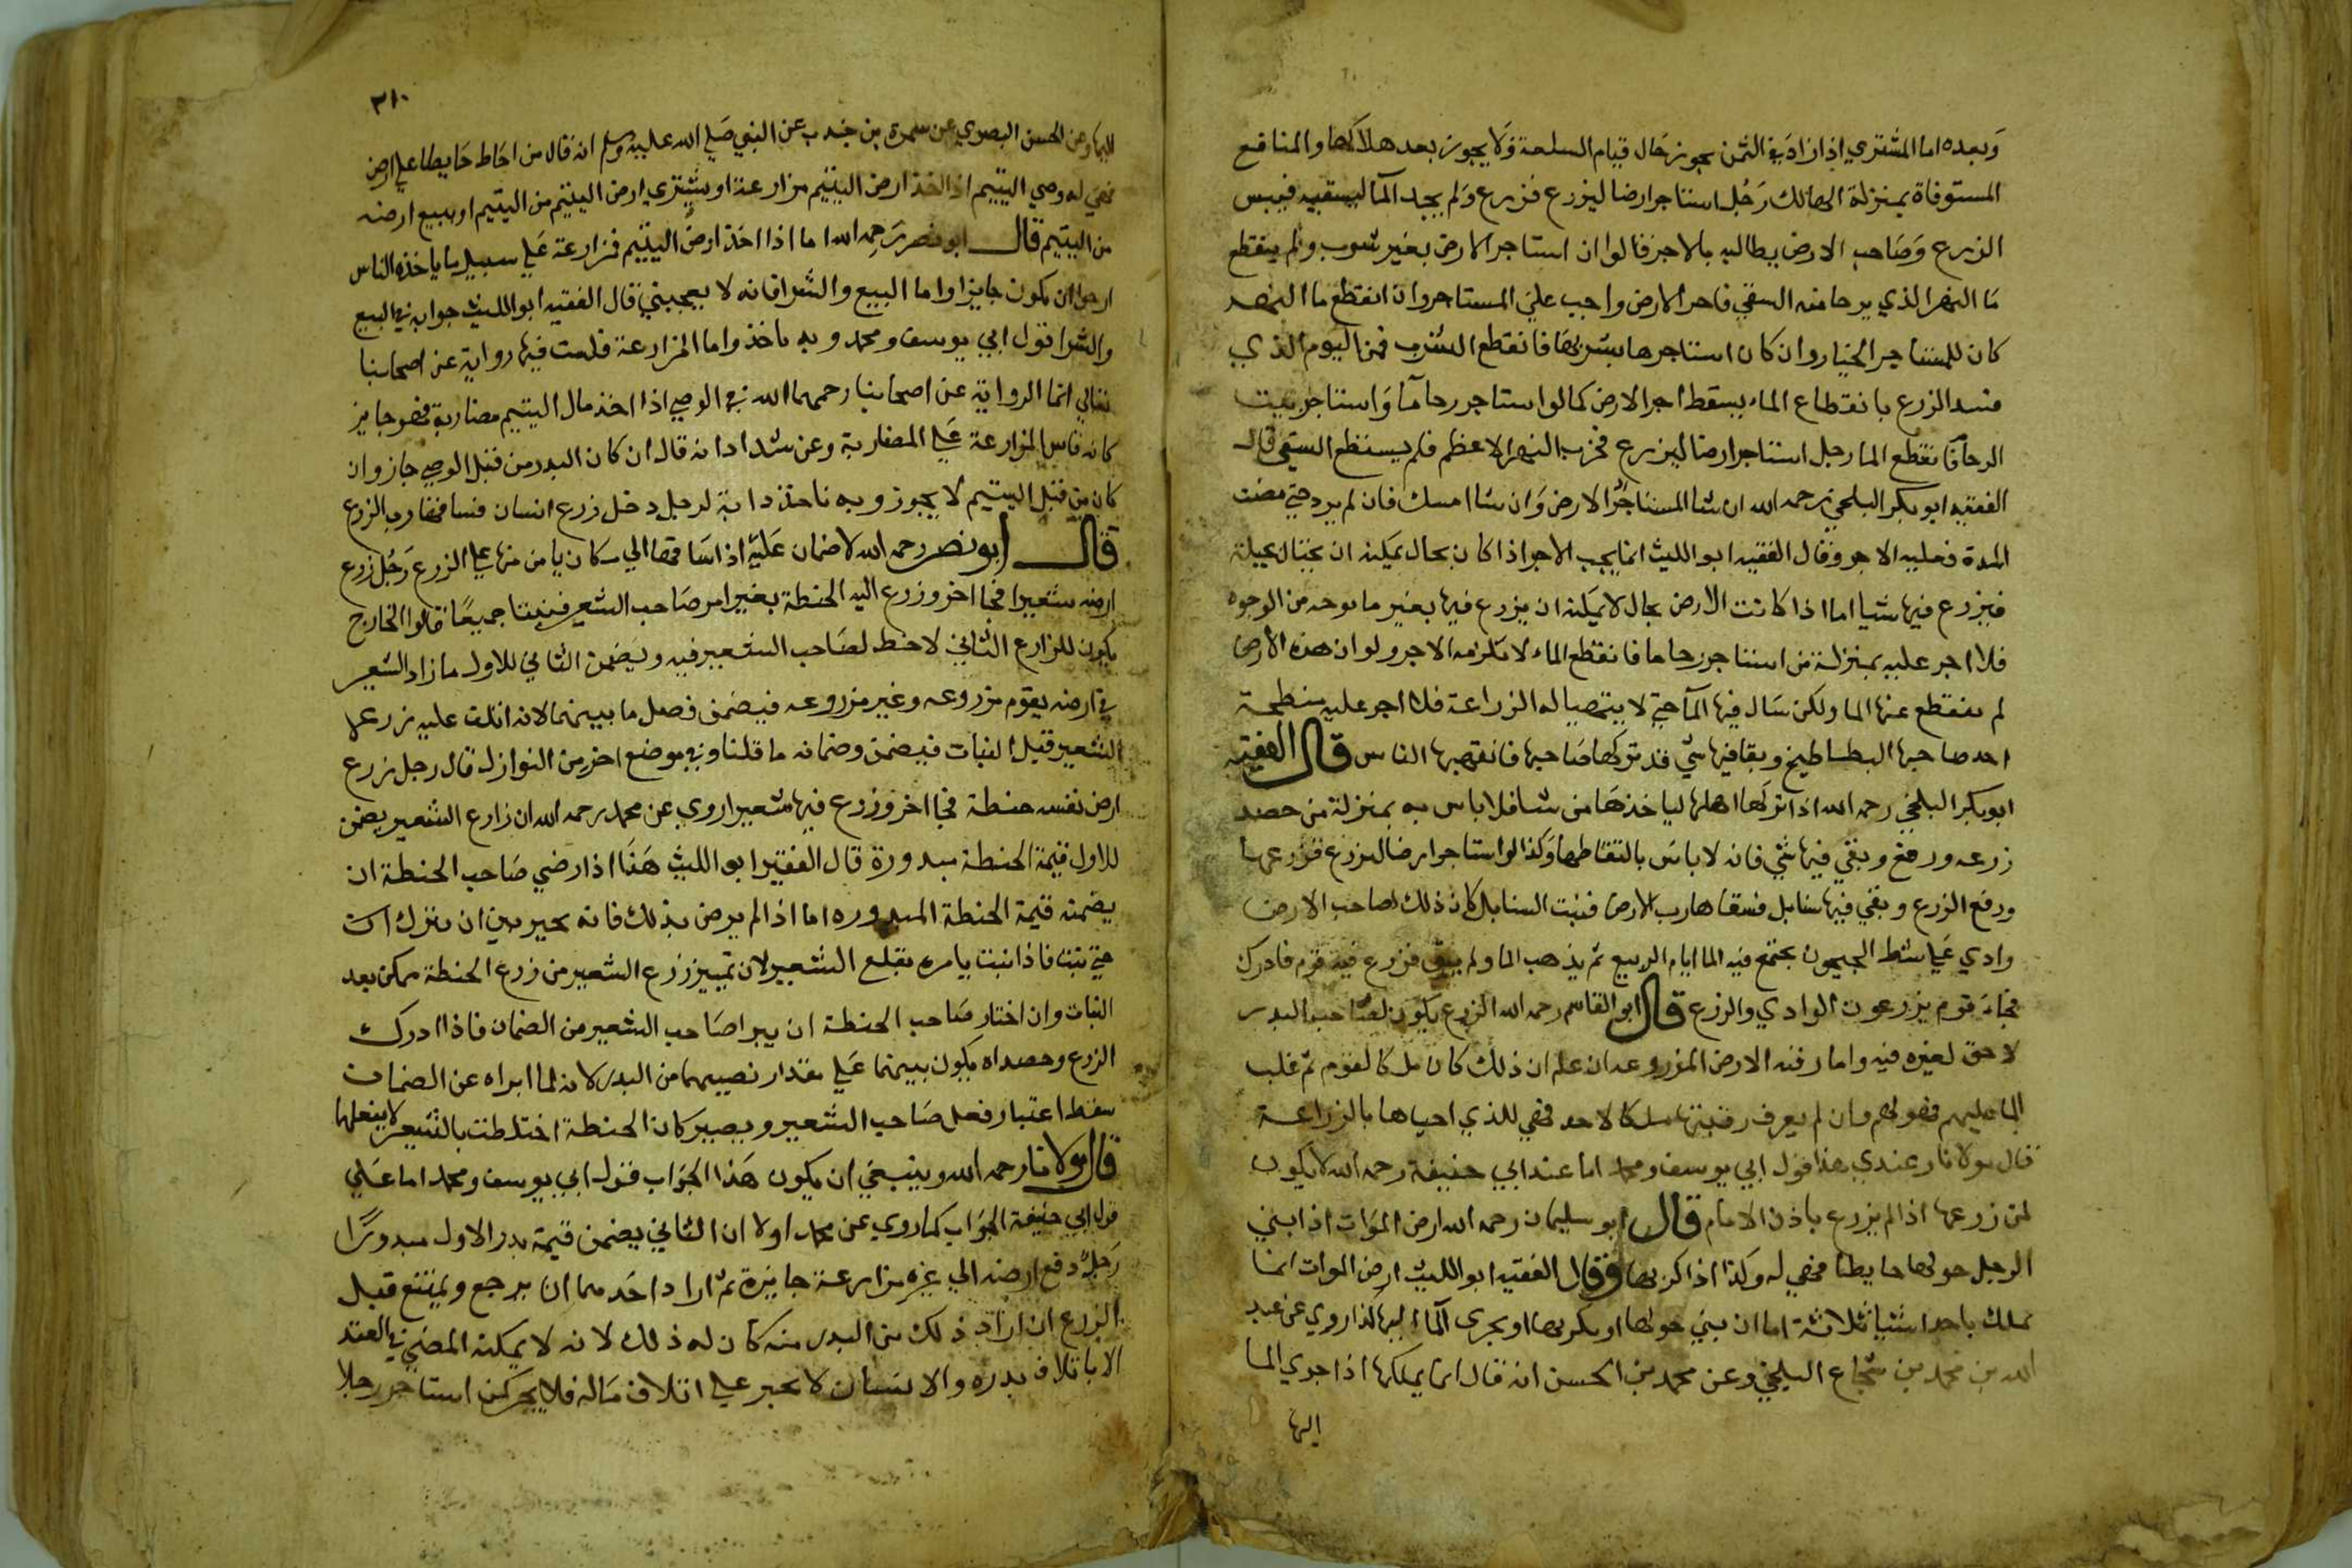 وبعده اما المشتري اذا زاد في الثمن يجوز حال قيام السلعة ولا يجوز بعد هلاكها والمنافع
المستوفاة بمنزلة الهالك رجل استاجر ارضا ليزرع فزرع ولم يجد الما ليسقيه فيبس
الزرع وصاحب الارض يطالبه بالاجر قالوا ان استاجر الارض بغير شرب ولم ينقطع
ما النهر الذي يرجا منه السقي فاجر الارض واجب على المستاجر وان انقطع ما النهر
كان للمستاجر الخيار وان كان استاجرها بشربها فانقطع الشرب فمن اليوم الذي
فسد الزرع بانقطاع الماء يسقط اجر الارض كما لو استاجر رحا ما واستاجر بيت
الرحا فانقطع الما رجل استاجر ارضا ليزرع فخرب النهر الاعظم فلم يستطع السقي قال
الفقيه ابو بكر البلخي رحمه الله ان شا المستاجر الارض وان شا امسك فان لم يرد حتى مضت
المدة فعليه الاجر وقال الفقيه ابو الليث انما يجب الاجر اذا كان بحال يمكنه ان يحتال بحيلة
فيزرع فيها شيا اما اذا كانت الارض بحال لا يمكنه ان يزرع فيها بغير ما بوجه من الوجوه
فلا اجر عليه بمنزلة من استاجر رحا ما فانقطع الماء لا تلزمه الاجر ولو ان هذه الارض
لم ينقطع عنها الما ولكن سال فيها الما حتى لا يتهيا له الزراعة فلا اجر عليه مبطخة
اخد صاحبها البطاطيخ وبقا فيها شي قد تركها صاحبها فانتهبها الناس قال الفقيه
ابو بكر البلخي رحمه الله اذا تركها اهلها لياخذها من شا فلا باس به بمنزلة من حصد
زرعه ورفع وبقي فيها شي فانه لا باس بالتقاطها وكذا لو استاجر ارضا ليزرع فزرعها
ورفع الزرع وبقي فيها سنابل فسقاها رب الارض فنبتت السنابل كان ذلك لصاحب الارض
وادي على شط الجيحون يجتمع فيه الما ايام الربيع ثم يذهب الما ولم يبق فزرع فيه قوم فادرك
فجاء قوم يزرعون الوادي والزرع قال ابو القاسم رحمه الله الزرع يكون لصاحب البدر
لا حق لغيره فيه واما رقبه الارض المزروعه ان علم ان ذلك كان ملكا لقوم ثم غلب
الما عليهم فهو لهم وان لم يعرف رقبتها ملكا لاحد فهي للذي احياها بالزراعة
قال مولانا عندي هذا قول ابي يوسف ومحمد اما عند ابي حنيفة رحمه الله لا يكون
لمن زرعها اذا لم يزرع باذن الامام قال ابو سليمان رحمه الله ارض الموات اذا بني
الرجل حولها حايطا فهي له وكذا اذا كربها وقال الفقيه ابو الليث ارض الموات انما
تملك باحد اشيا ثلاثة اما ان يبني حولها او يكربها او يجري الماء اليها كذا روي عن عبد
الله بن محمد بن شجاع البلخي وعن محمد بن الحسن انه قال انما يملكها اذا جري الما
اليها
٣١٠
اليها وعن الحسن البصري عن سمرة بن جندب عن النبي صلى الله عليه وسلم انه قال من احاط حايطا على ارض
فهي له وصي اليتيم اذا اخذ ارض اليتيم مزارعة او يشتري ارض اليتيم من اليتيم او يبيع ارضه
من اليتيم قال ابو نصر رحمه الله اما اذا اخذ ارض اليتيم مزارعة على سبيل ما ياخذه الناس
ارجوا ان يكون جايزا واما البيع والشرا فانه لا يعجبني قال الفقيه ابو الليث جوابه في البيع
والشرا قول ابي يوسف ومحمد وبه ناخذ واما المزارعة فليست فيها رواية عن اصحابنا
انما الرواية عن اصحابنا رحمهما الله في الوصي اذا اخذ مال اليتيم مضاربة فهو جايز
كانه قاس المزارعة على المضاربة وعن شداد انه قال ان كان البدر من قبل الوصي جاز وان
كان من قبل اليتيم لا يجوز وبه ناخذ دابة لرجل دخل زرع انسان فساقها رب الزرع
قال ابو نصر رحمه الله لا ضمان عليه اذا ساقها الى مكان يامن منها على الزرع رجل زرع
ارضه شعيرا فجا اخر وزرع اليه الحنطة بغير امر صاحب الشعير فنبتا جميعا قالوا الخارج
يكون للزارع الثاني لا حظ لصاحب الشعير فيه ويضمن الثاني للاول ما زاد الشعير
في ارضه يقوم مزروعه وغير مزروعه فيضمن فضل ما بينهما لانه اتلف عليه زرعه
الشعير قبل النبات فيضمن وضمانه ما قلنا وفي موضع اخر من النوازل قال رجل زرع
ارض نفسه حنطة فجا اخر وزرع فيها شعيرا روي عن محمد رحمه الله ان زارع الشعير يضمن
للاول قيمة الحنطة مبدورة قال الفقيه ابو الليث هذا اذا رضي صاحب الحنطة ان
يضمنه قيمة الحنطة المبدوره اما اذا لم يرض بذلك فانه يخير بين ان يترك
حتى نبتا فاذا نبت يامره بقلع الشعير لان تمييز زرع الشعير من زرع الحنطة ممكن بعد
النبات وان اختار صاحب الحنطة ان يبرا صاحب الشعير من الضمان فاذا ادرك
الزرع وحصداه يكون بينهما على مقدار نصيبهما من البدر لانه لما ابراه عن الضمان
سقط اعتبار فعل صاحب الشعير ويصير كان الحنطة اختلطت بالشعير لا بفعلهما
قال مولانا رحمه الله وينبغي ان يكون هذا الجواب قول ابي يوسف ومحمد اما على
قول ابي حنيفة الجواب كما روي عن محمد اولا ان الثاني يضمن قيمة بدر الاول مبدورا
رجل دفع ارضه الى غيره مزارعة جايزة ثم اراد احدهما ان يرجع ويمتنع قبل
الزرع ان اراد ذلك من البدر منه كان له ذلك لانه لا يمكنه المضي في العقد
الا باتلاف بدره والانسان لا يجبر على اتلاف ماله فلا يجبر كمن استاجر رجلا